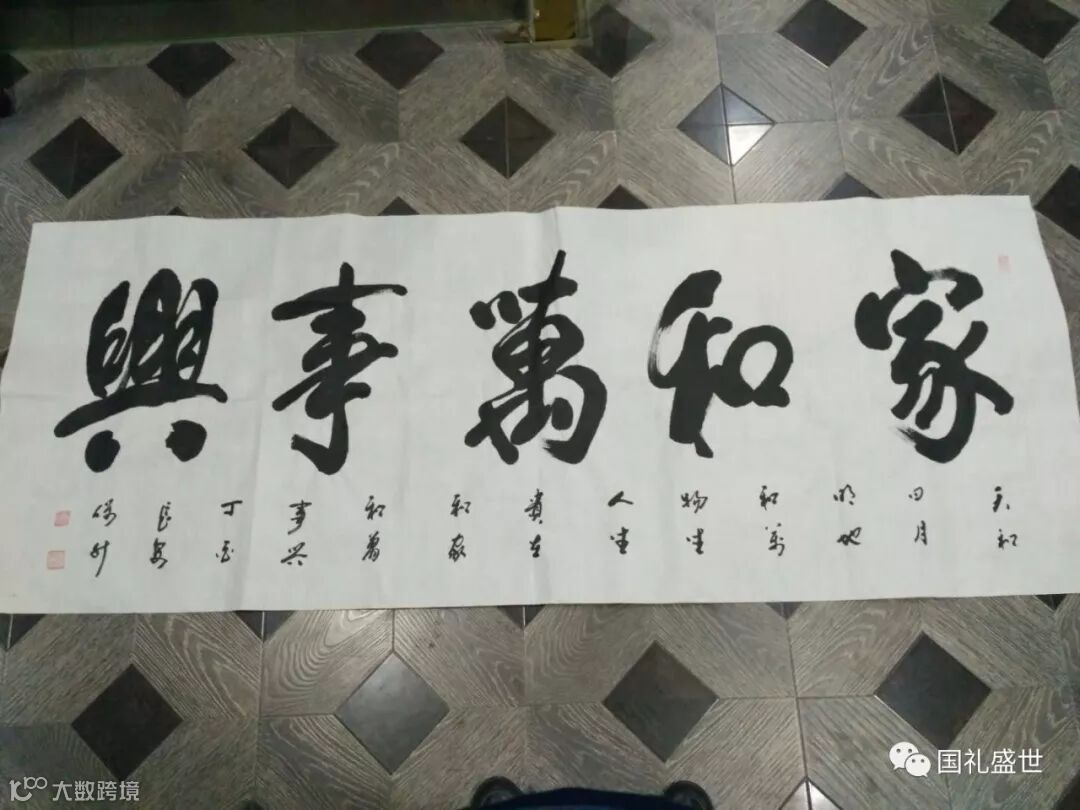 家和萬事興
天和
日月
明地
和萬
物生
人生
貴在
和家
和萬
事興
丁酉
長安
国礼盛世
大数跨境